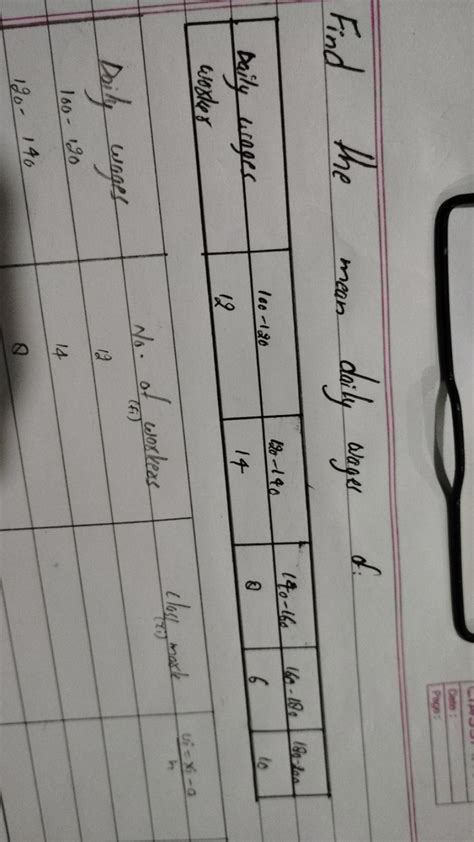 Date:
Page:
Find the mean daily wages of:
Daily wages 100-120 120-140 140-160 160-180 180-200
worker 12 14 8 6 10
Daily wages No. of workers (fi) class mark (xi) ui = xi - a / h
100-120 12
120-140 14
8